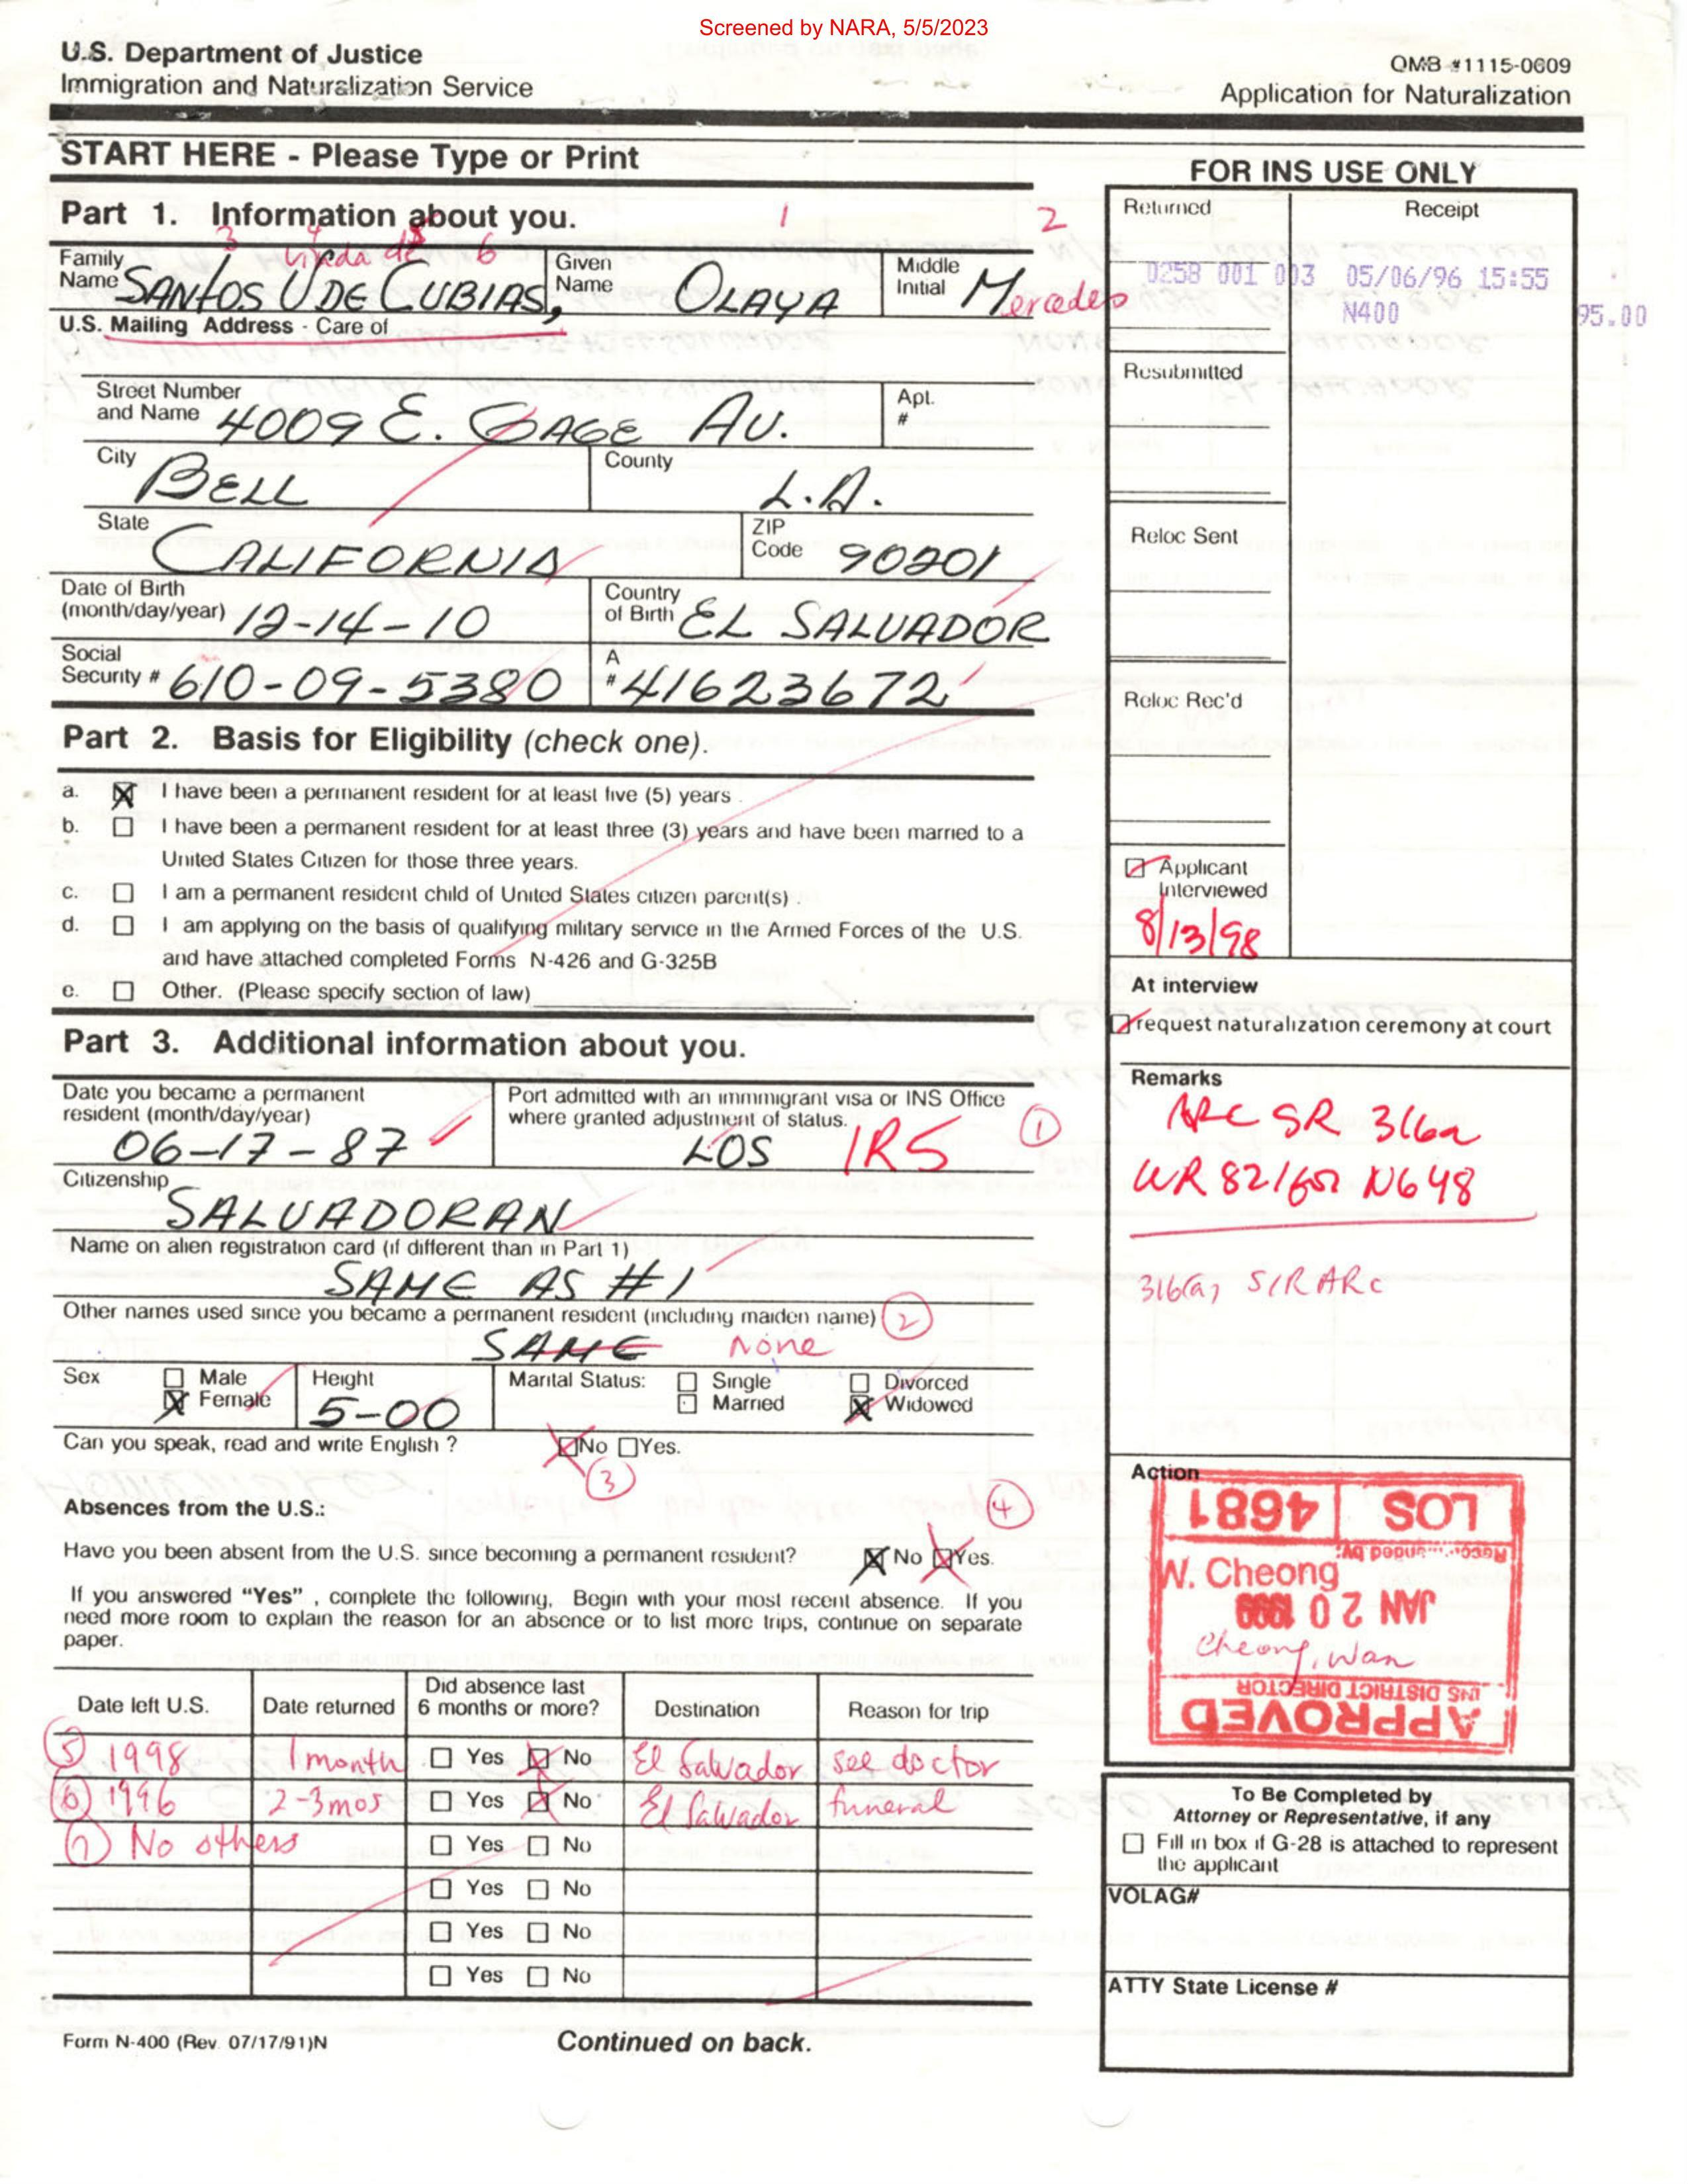 Screened by NARA, 5/5/2023
U.S. Department of Justice
Immigration and Naturalization Service
OMB #1115-0609
Application for Naturalization
START HERE - Please Type or Print
FOR INS USE ONLY
Part 1. Information about you.
1
2
3 4 5 6
Viuda de
Family Name SANTOS V DE CUBIAS,
Given Name OLAYA
Middle Initial Mercedes
U.S. Mailing Address - Care of
Street Number and Name 4009 E. GAGE AV.
Apt. #
City BELL
County L.A.
State CALIFORNIA
ZIP Code 90201
Date of Birth (month/day/year) 12-14-10
Country of Birth EL SALVADOR
Social Security # 610-09-5380
A # 41623672
Part 2. Basis for Eligibility (check one).
a. I have been a permanent resident for at least five (5) years
b. I have been a permanent resident for at least three (3) years and have been married to a
United States Citizen for those three years.
c. I am a permanent resident child of United States citizen parent(s)
d. I am applying on the basis of qualifying military service in the Armed Forces of the U.S.
and have attached completed Forms N-426 and G-325B
e. Other. (Please specify section of law)
Part 3. Additional information about you.
Date you became a permanent resident (month/day/year)
06-17-87
Port admitted with an immmigrant visa or INS Office
where granted adjustment of status.
LOS IR5 1
Citizenship
SALVADORAN
Name on alien registration card (if different than in Part 1)
SAME AS #1
Other names used since you became a permanent resident (including maiden name) 2
SAME None
Sex Male Female
Height 5-00
Marital Status: Single Married Divorced Widowed
Can you speak, read and write English ? No Yes.
3
Absences from the U.S.:
4
Have you been absent from the U.S. since becoming a permanent resident? No Yes.
If you answered “Yes” , complete the following, Begin with your most recent absence. If you
need more room to explain the reason for an absence or to list more trips, continue on separate
paper.
Date left U.S. Date returned Did absence last 6 months or more? Destination Reason for trip
5 1998 1 month Yes No El Salvador see doctor
6 1996 2-3mos Yes No El Salvador funeral
7 No others Yes No
Yes No
Yes No
Yes No
Form N-400 (Rev. 07/17/91)N
Continued on back.
Returned
Receipt
0258 001 003 05/06/96 15:55
N400 95.00
Resubmitted
Reloc Sent
Reloc Rec'd
Applicant Interviewed
8/13/98
At interview
request naturalization ceremony at court
Remarks
ARC SR 316a
WR 821 for N648
316(a) S/R ARC
Action
LOS 4681
W. Cheong
JAN 20 1999
Cheong, Wan
INS DISTRICT DIRECTOR
APPROVED
To Be Completed by
Attorney or Representative, if any
Fill in box if G-28 is attached to represent
the applicant
VOLAG#
ATTY State License #